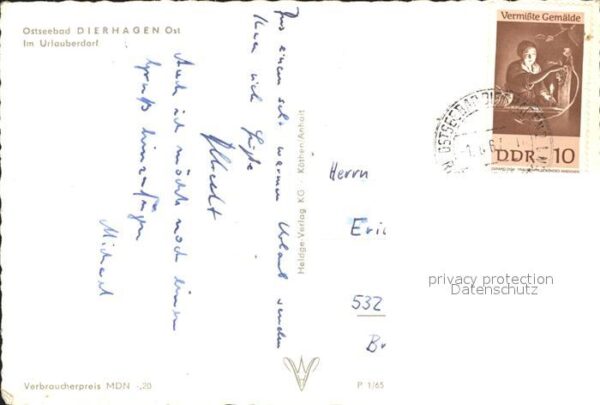 Ostseebad DIERHAGEN Ost
Im Urlauberdorf
Aus einem sehr warmen Urlaub senden
Auch ich möchte noch einen
Gruß hinzufügen
Michael
Verbraucherpreis MDN -,20
Heldge-Verlag KG · Köthen/Anhalt
P 1/65
Vermißte Gemälde
DDR 10
OSTSEEBAD
Herrn
Eric
532
Br
privacy protection
Datenschutz